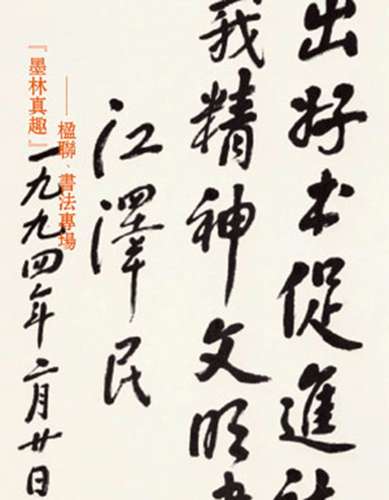 出好书促進社
我精神文明
江澤民
一九九四年二月廿日
——楹聯·書法專場
『墨林真趣』